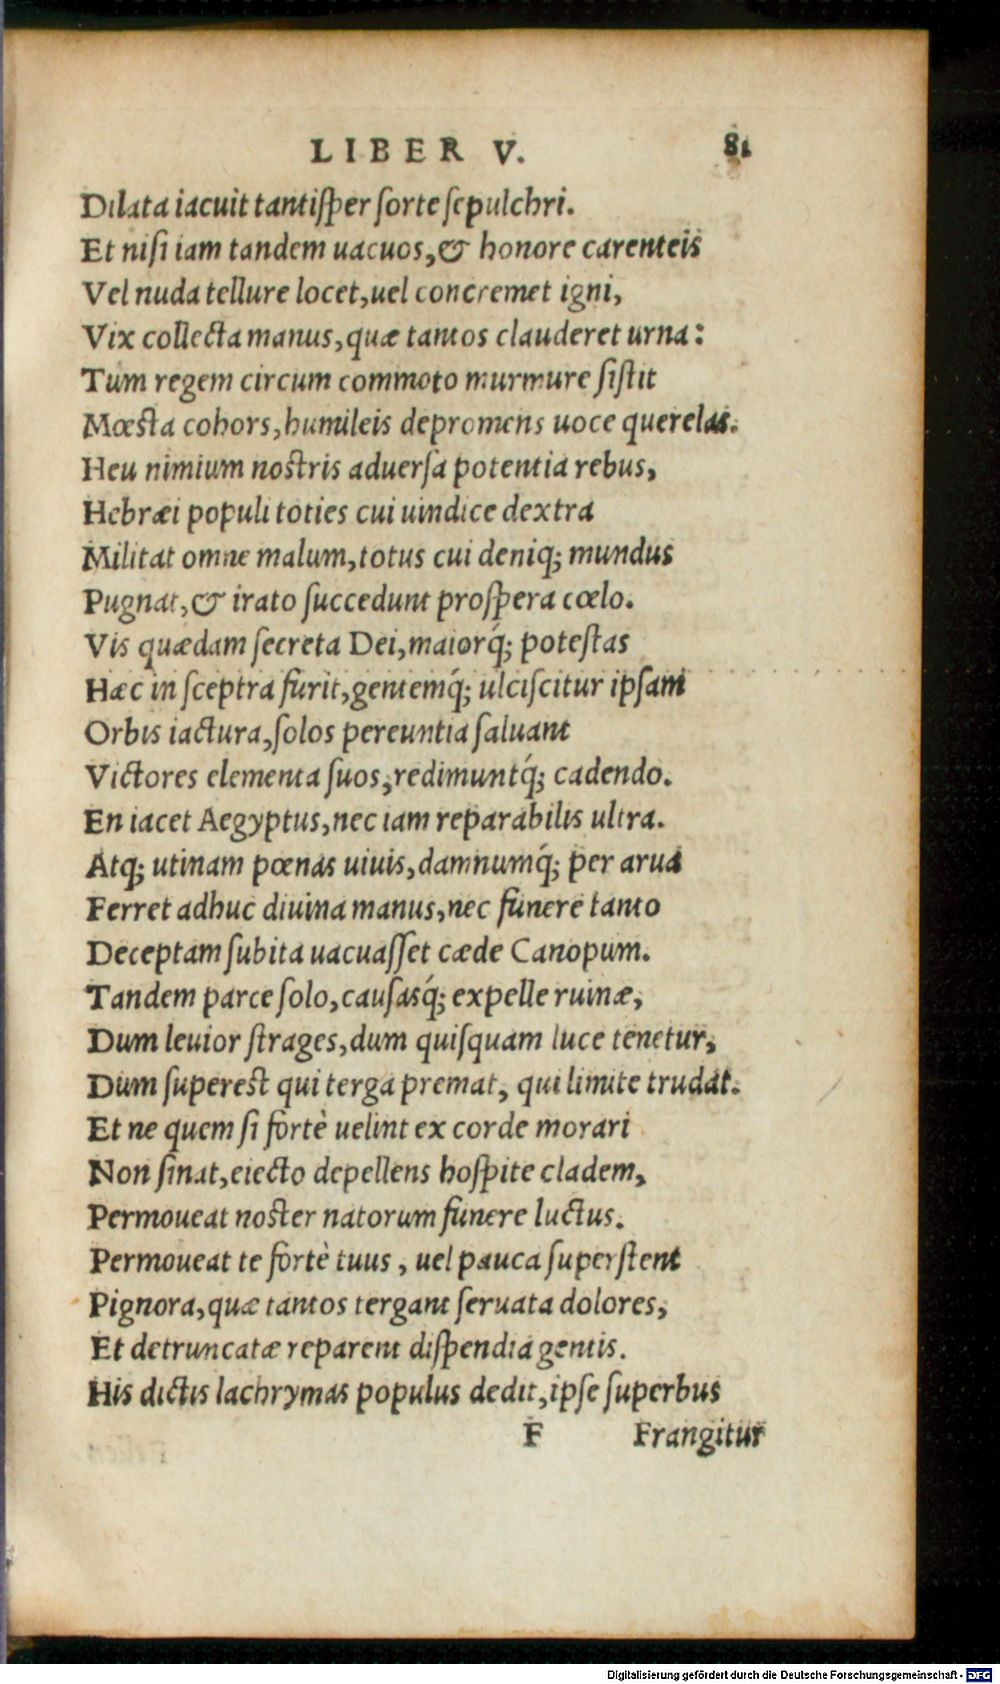 LIBER V. 81
Dilata iacuit tantiſper ſorte ſepulchri.
Et niſi iam tandem uacuos,& honore carenteis
Vel nuda tellure locet,uel concremet igni,
Vix collecta manus,quæ tantos clauderet urna:
Tum regem circum commoto murmure ſiſtit
Mœſta cohors,humileis depromens uoce querelas.
Heu nimium noſtris aduerſa potentia rebus,
Hebræi populi toties cui uindice dextra
Militat omne malum,totus cui deniq; mundus
Pugnat,& irato ſuccedunt proſpera cœlo.
Vis quædam ſecreta Dei,maiorq́; poteſtas
Hæc in ſceptra furit,gentemq́; ulciſcitur ipſam
Orbis iactura,ſolos pereuntia ſaluant
Victores elementa ſuos,redimuntq́; cadendo.
En iacet Aegyptus,nec iam reparabilis ultra.
Atq; utinam pœnas uiuis,damnumq́; per arua
Ferret adhuc diuina manus,nec funere tanto
Deceptam ſubita uacuaſſet cæde Canopum.
Tandem parce ſolo,cauſasq́; expelle ruinæ,
Dum leuior ſtrages,dum quiſquam luce tenetur,
Dum ſupereſt qui terga premat, qui limite trudat.
Et ne quem ſi fortè uelint ex corde morari
Non ſinat,eiecto depellens hoſpite cladem,
Permoueat noſter natorum funere luctus.
Permoueat te fortè tuus , uel pauca ſuperſtent
Pignora,quæ tantos tergant ſeruata dolores,
Et detruncatæ reparent diſpendia gentis.
His dictis lachrymas populus dedit,ipſe ſuperbus
F Frangitur
Digitalisierung gefördert durch die Deutsche Forschungsgemeinschaft - DFG